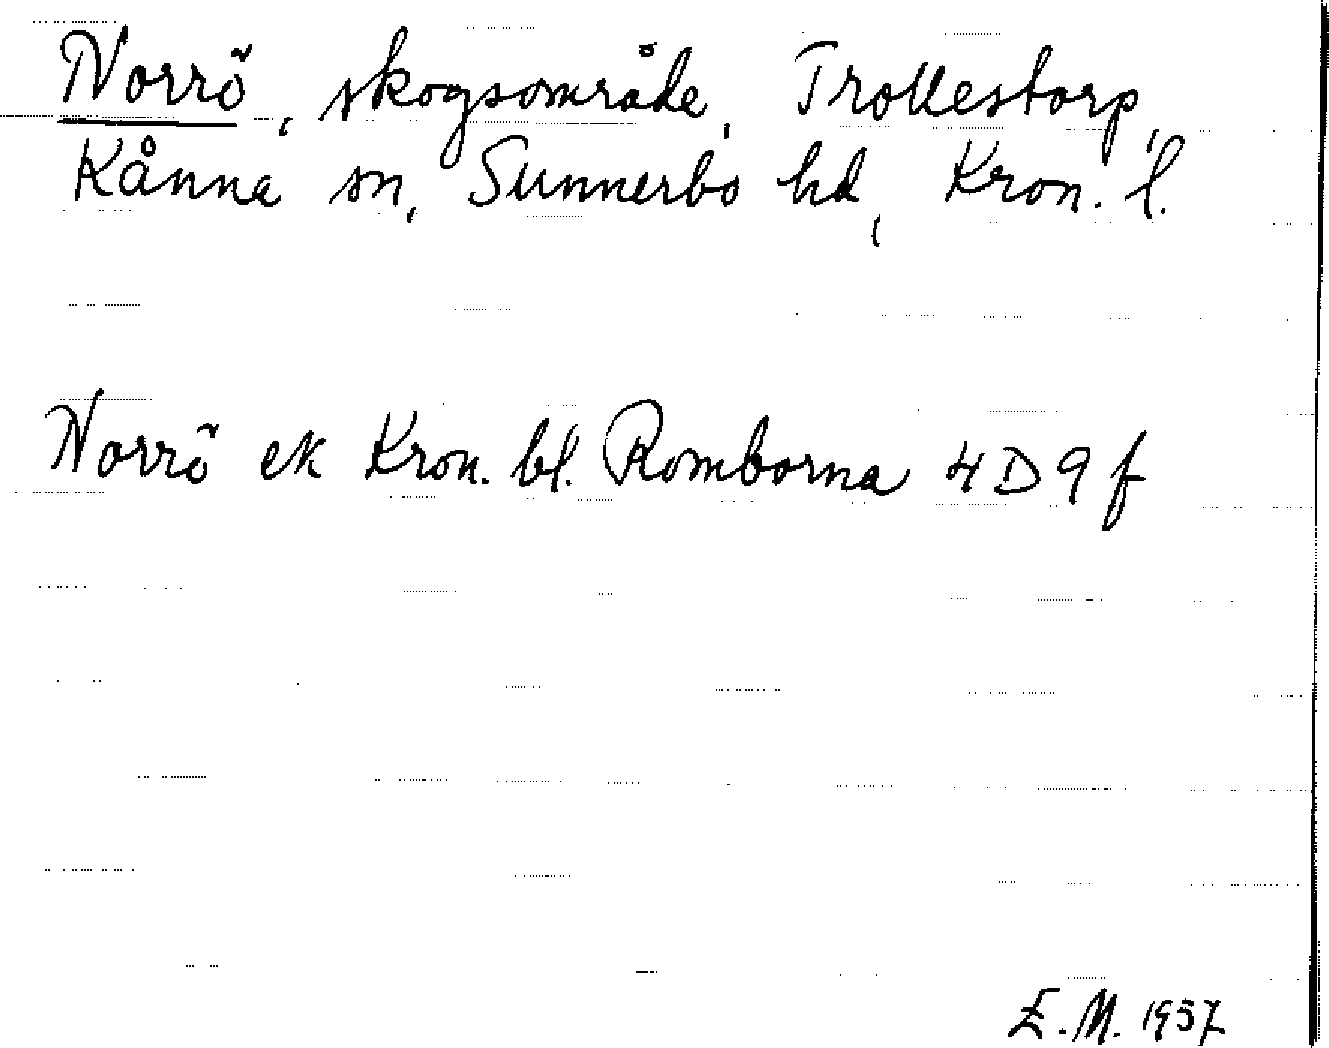 Norrö, skogsområde, Trollestorp,
Kånna sn, Sunnerbo hd, Kron. l.
Norrö ek Kron. bl. Romborna 4D9f
E. M. 1957